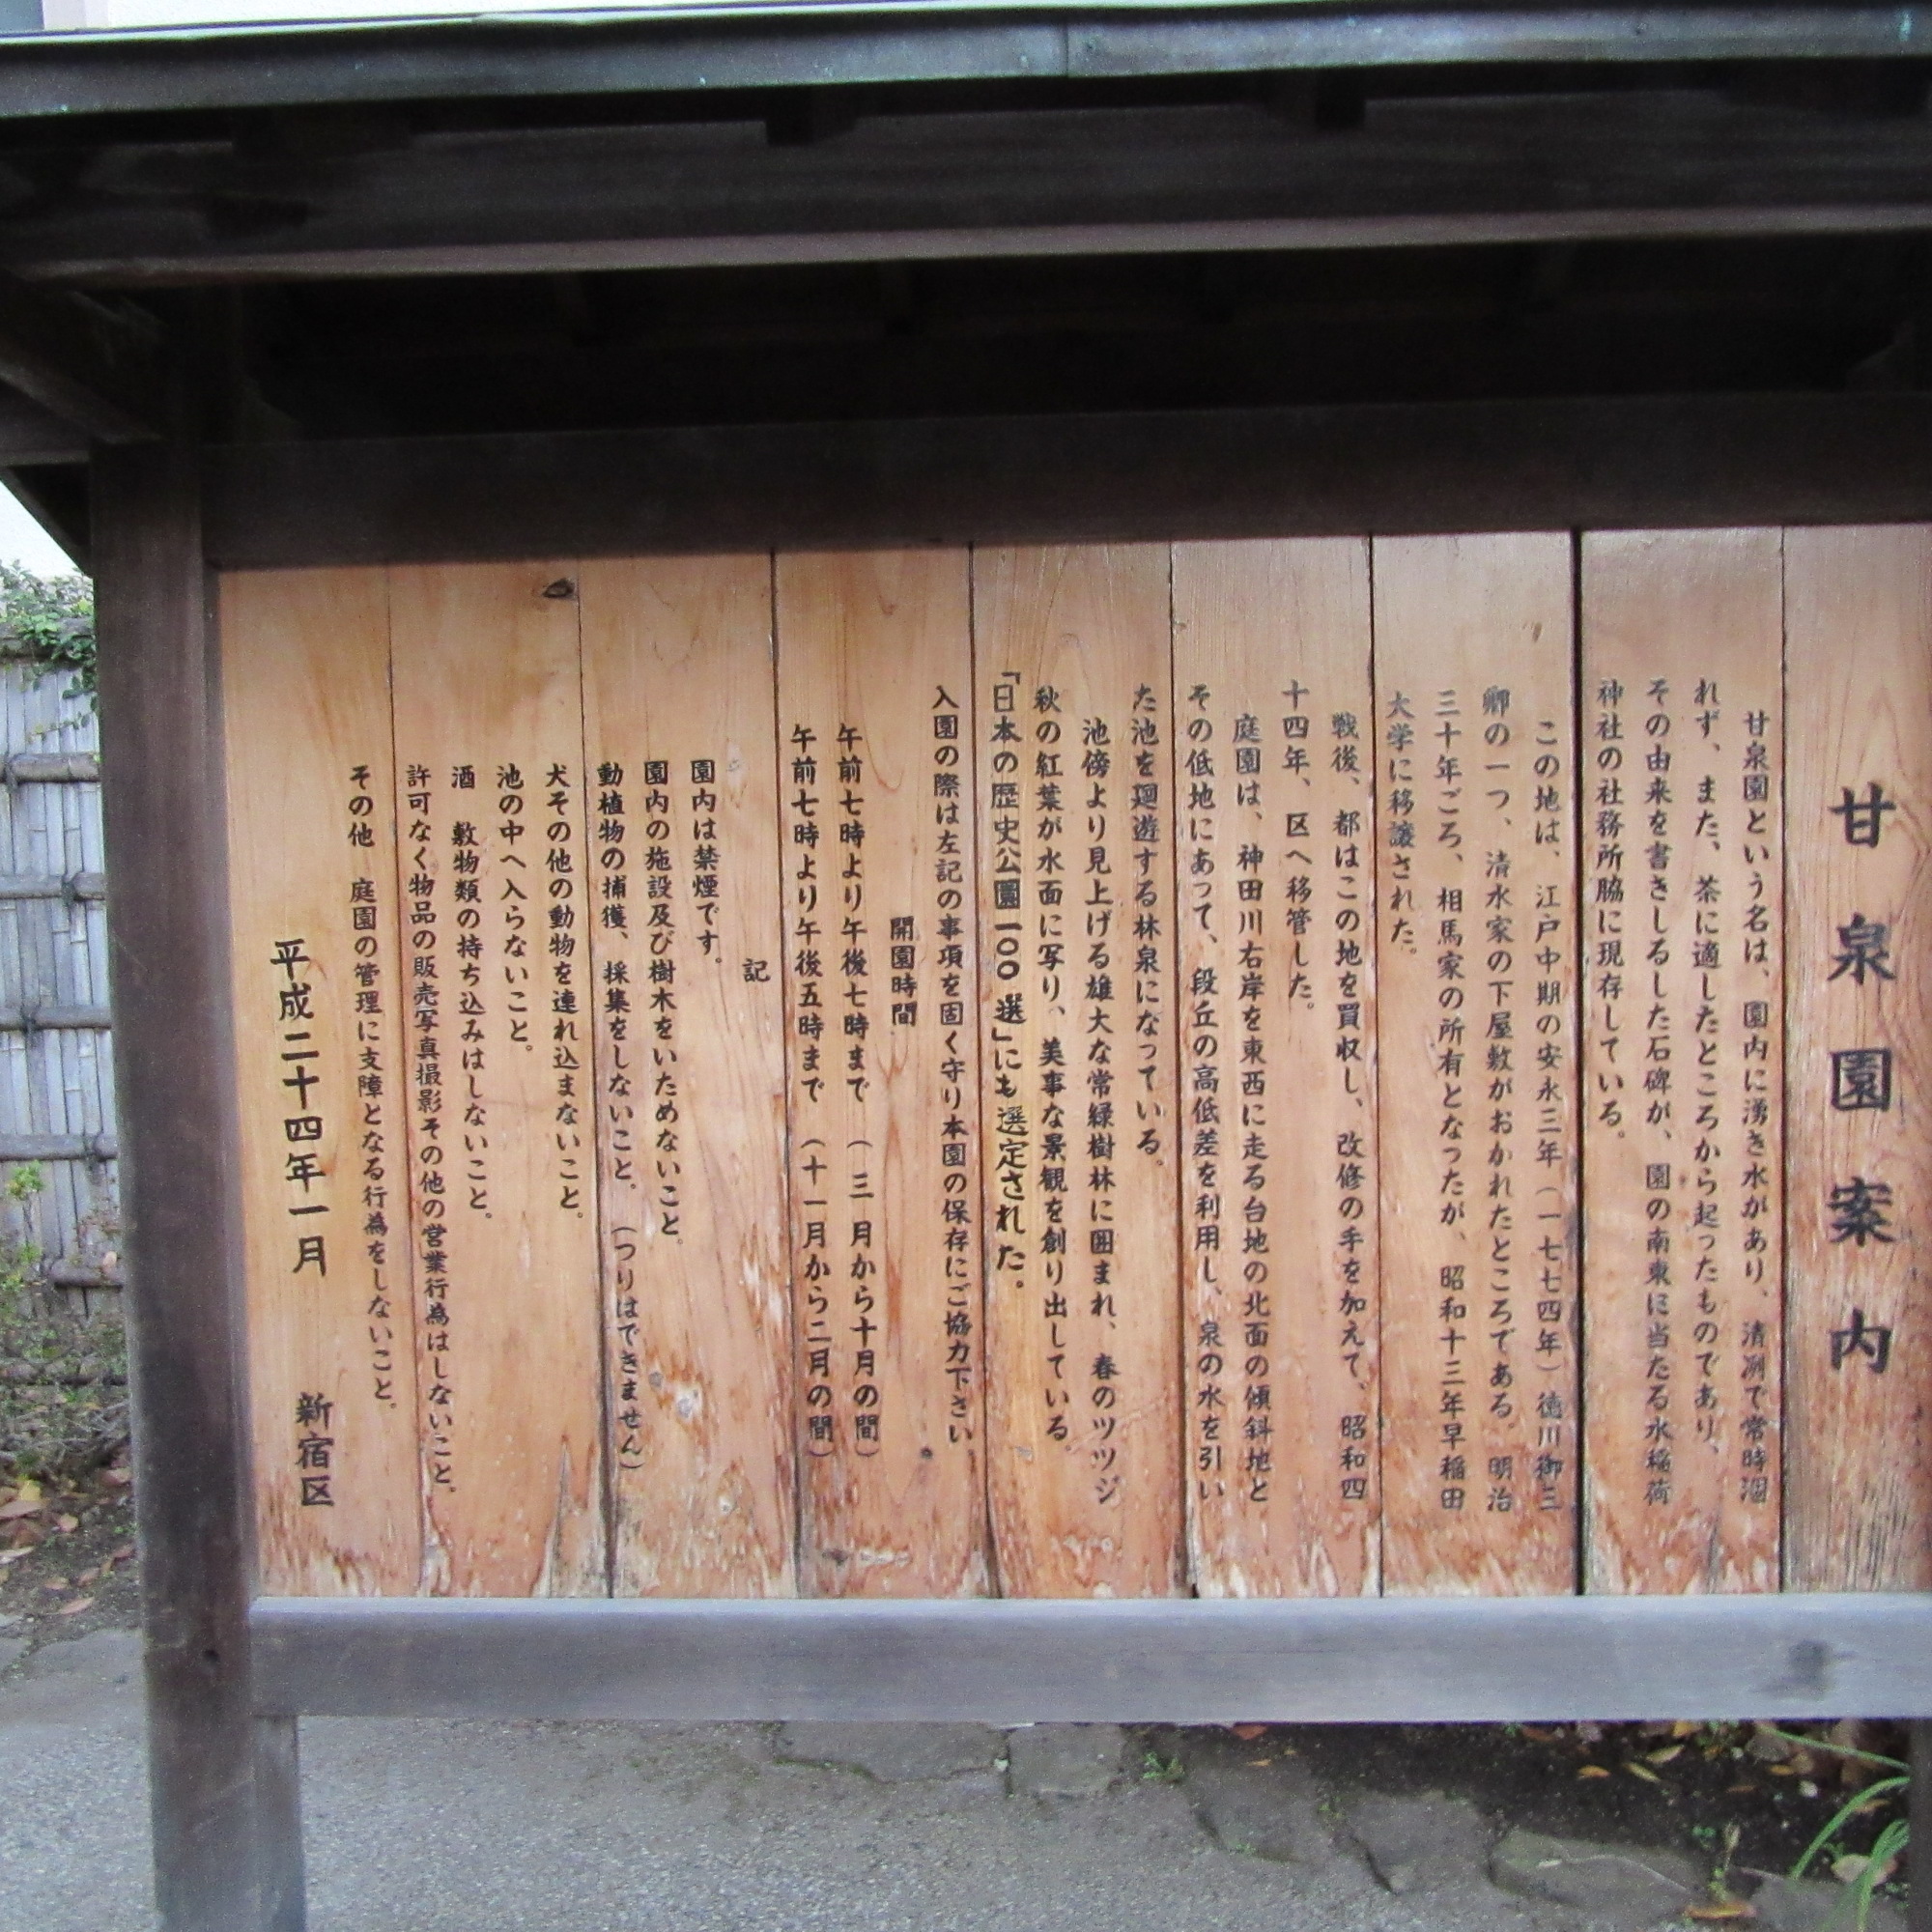 甘泉園案内
甘泉園という名は、園内に湧き水があり、清冽で常時涸
れず、また、茶に適したところから起ったものであり、
その由来を書きしるした石碑が、園の南東に当たる水稲荷
神社の社務所脇に現存している。
この地は、江戸中期の安永三年（一七七四年）徳川御三
卿の一つ、清水家の下屋敷がおかれたところである。明治
三十年ごろ、相馬家の所有となったが、昭和十三年早稲田
大学に移譲された。
戦後、都はこの地を買収し、改修の手を加えて、昭和四
十四年、区へ移管した。
庭園は、神田川右岸を東西に走る台地の北面の傾斜地と
その低地にあって、段丘の高低差を利用し、泉の水を引い
た池を廻遊する林泉になっている。
池傍より見上げる雄大な常緑樹林に囲まれ、春のツツジ
秋の紅葉が水面に写り、美事な景観を創り出している。
「日本の歴史公園一〇〇選」にも選定された。
入園の際は左記の事項を固く守り本園の保存にご協力下さい。
開園時間
午前七時より午後七時まで（三月から十月の間）
午前七時より午後五時まで（十一月から二月の間）
記
園内は禁煙です。
園内の施設及び樹木をいためないこと。
動植物の捕獲、採集をしないこと。（つりはできません）
犬その他の動物を連れ込まないこと。
池の中へ入らないこと。
酒 敷物類の持ち込みはしないこと。
許可なく物品の販売写真撮影その他の営業行為はしないこと。
その他 庭園の管理に支障となる行為をしないこと。
平成二十四年一月 新宿区